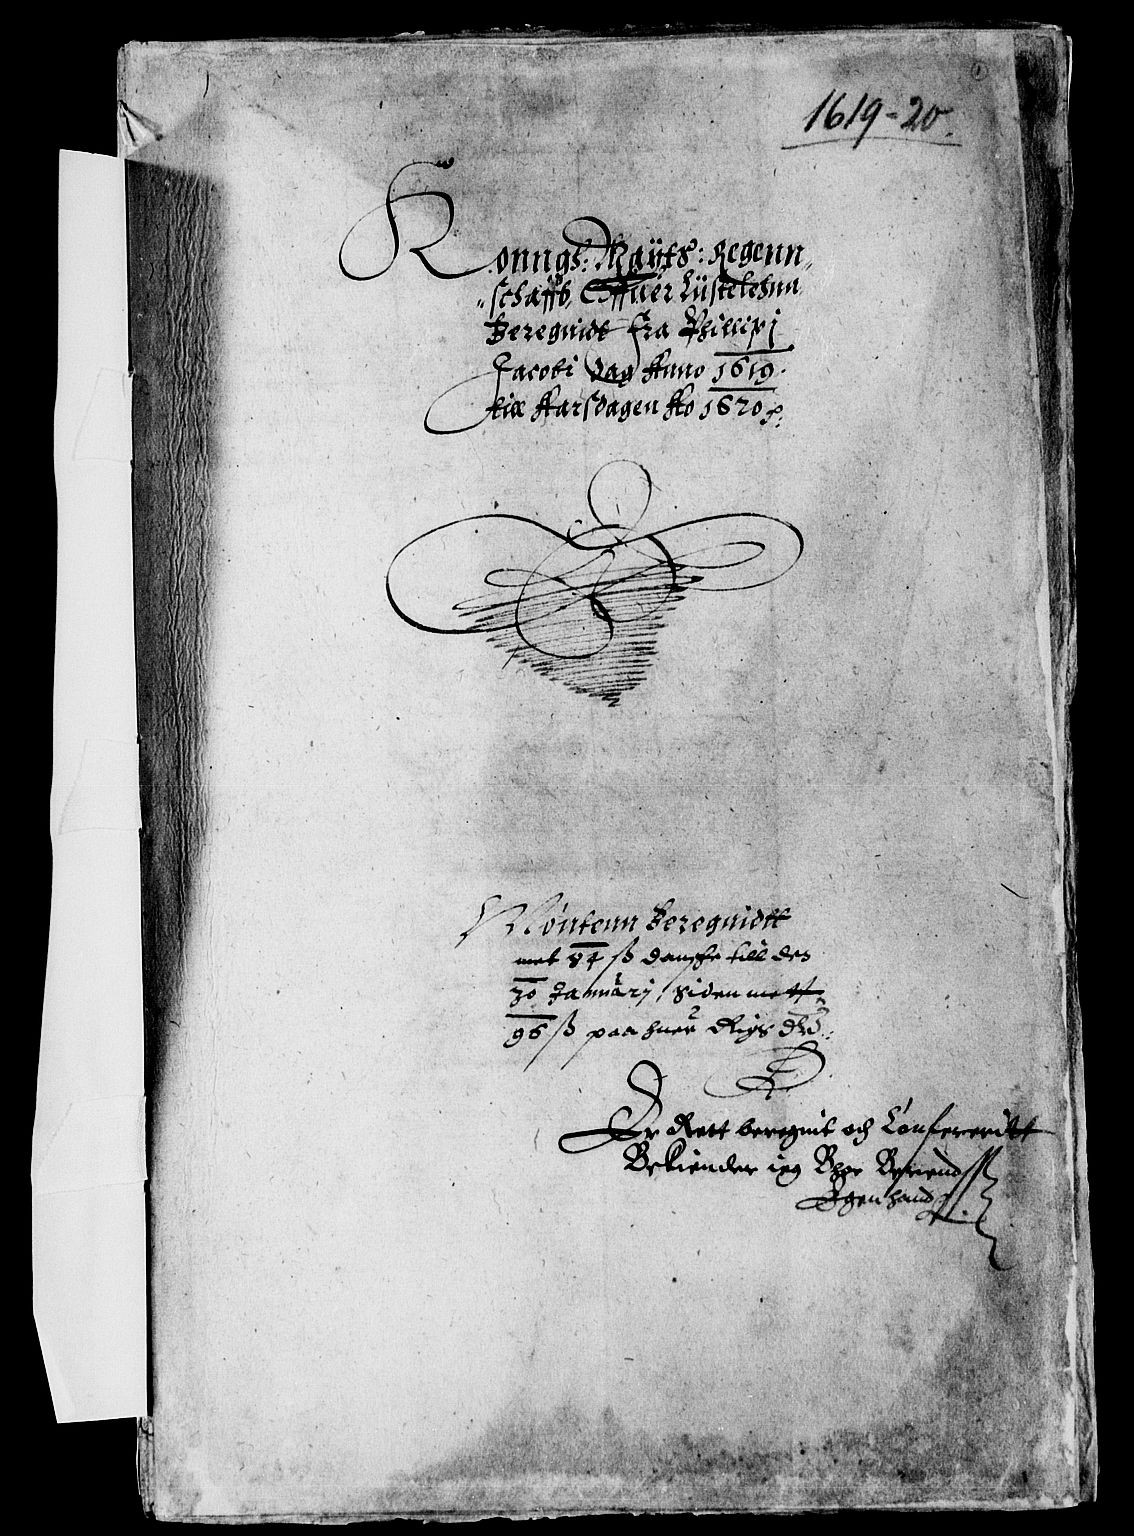 1
1619-20.
Konngs: Maÿts: Regenn„
„schafft, Offuer Lüstelehnn
Beregnidt fra Phillipi
Jacobi dag Anno 1619.
till Aarsdagen Ao 1620
Möntenn Beregnidtt
met 84 ß danske till den
30 Januarj, Siden mett
96 ß paa huer Rigs dlr:
Er Rett beregnit och Confereritt
Bekiender ieg
Egen hand